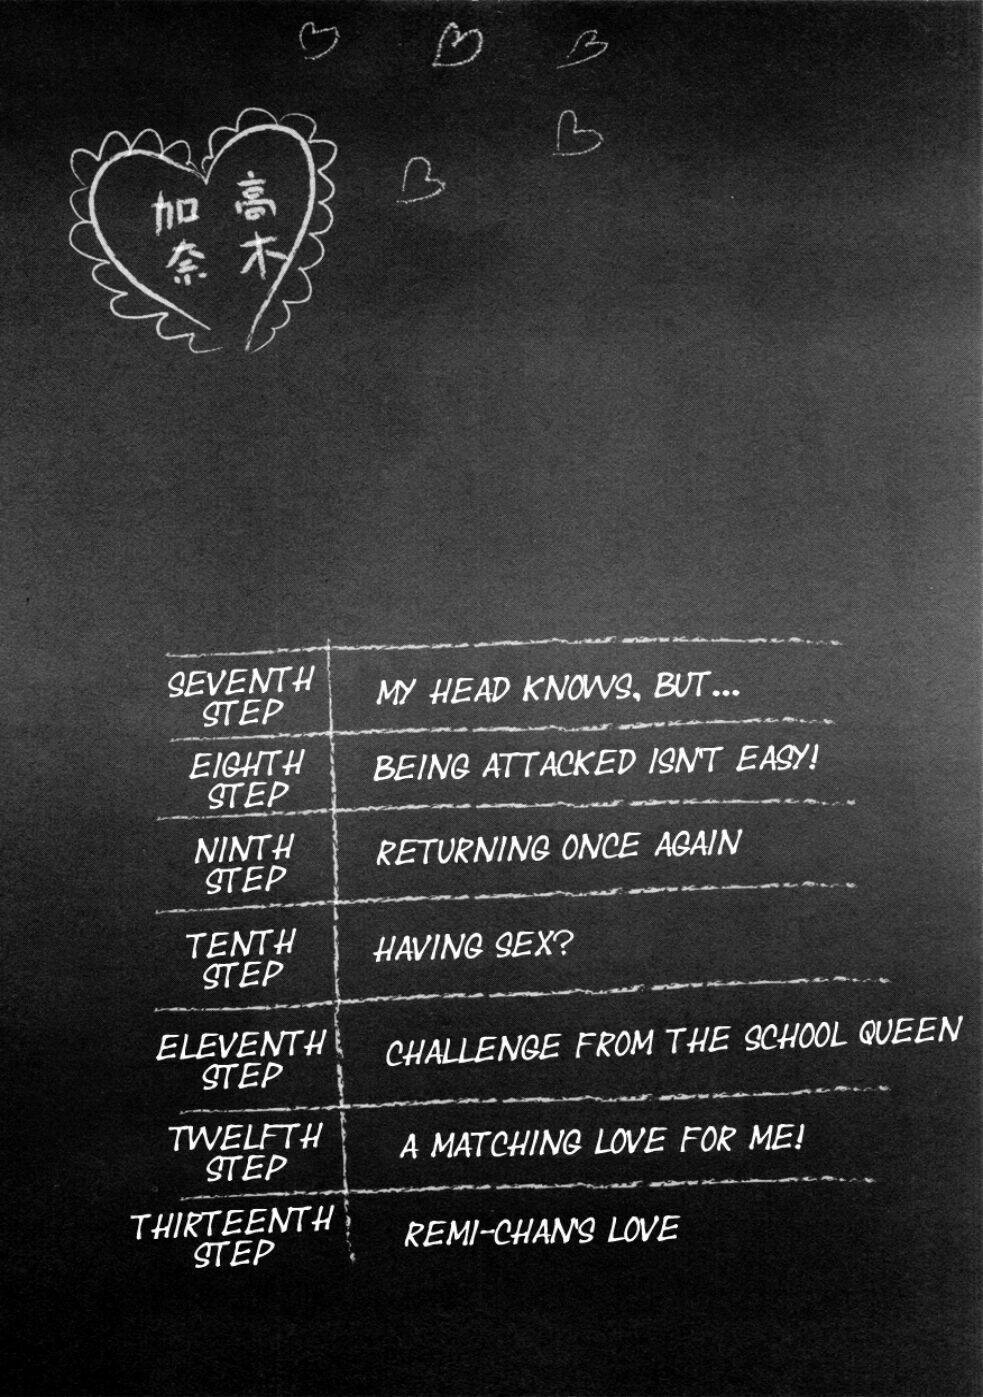 高木
加奈
SEVENTH
STEP
MY HEAD KNOWS, BUT...
EIGHTH
STEP
BEING ATTACKED ISN'T EASY!
NINTH
STEP
RETURNING ONCE AGAIN
TENTH
STEP
HAVING SEX?
ELEVENTH
STEP
CHALLENGE FROM THE SCHOOL QUEEN
TWELFTH
STEP
A MATCHING LOVE FOR ME!
THIRTEENTH
STEP
REMI-CHAN'S LOVE